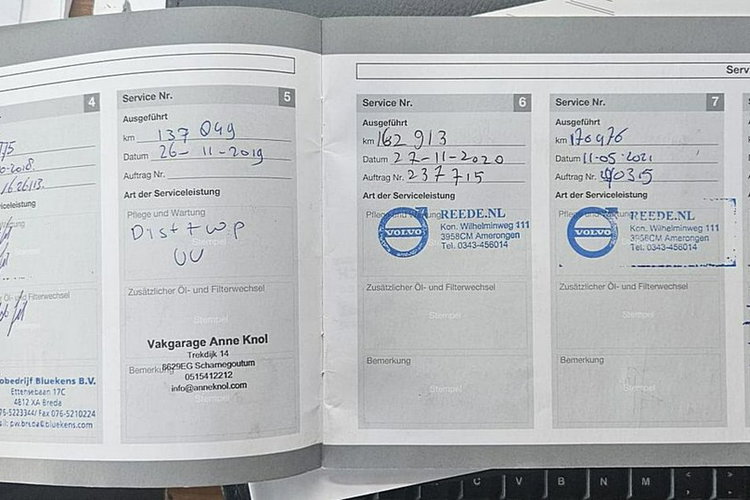 4
eistung
Öl- und Filterwechsel
obedrijf Bluekens B.V.
Ettensebaan 17C
4812 XA Breda
76-5223344/ Fax 076-5210224
il: pw.breda@bluekens.com
Service Nr. 5
Ausgeführt
km 137 049
Datum 26-11-2019
Auftrag Nr.
Art der Serviceleistung
Pflege und Wartung
Dist + w.p
Stempel
Zusätzlicher Öl- und Filterwechsel
Stempel
Vakgarage Anne Knol
Trekdijk 14
Bemerkung
8629EG Scharnegoutum
0515412212
info@anneknol.com
Stempel
Serv
Service Nr. 6
Ausgeführt
km 162 913
Datum 27-11-2020
Auftrag Nr. 237715
Art der Serviceleistung
Pflege und Wartung
VOLVO
REEDE.NL
Kon. Wilhelminweg 111
3958CM Amerongen
Tel. 0343-456014
Zusätzlicher Öl- und Filterwechsel
Stempel
Bemerkung
Stempel
Service Nr. 7
Ausgeführt
km 170976
Datum 11-05-2021
Auftrag Nr.
Art der Serviceleistung
Pflege und Wartung
VOLVO
REEDE.NL
Kon. Wilhelminweg 111
3958CM Amerongen
Tel. 0343-456014
Zusätzlicher Öl- und Filterwechsel
Stempel
Bemerkung
Stempel
C V B N M